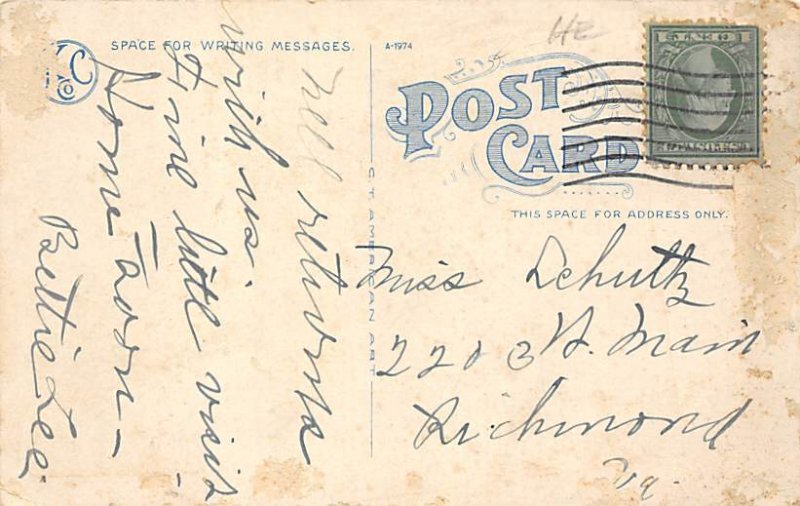 SPACE FOR WRITING MESSAGES.
A-1974
HE
POST
CARD
THIS SPACE FOR ADDRESS ONLY.
C.T. AMERICAN ART
Nell returns
with us.
Fine little visit
Home soon—
Bettie Lee
Miss Schultz
Main
Richmond
Va.